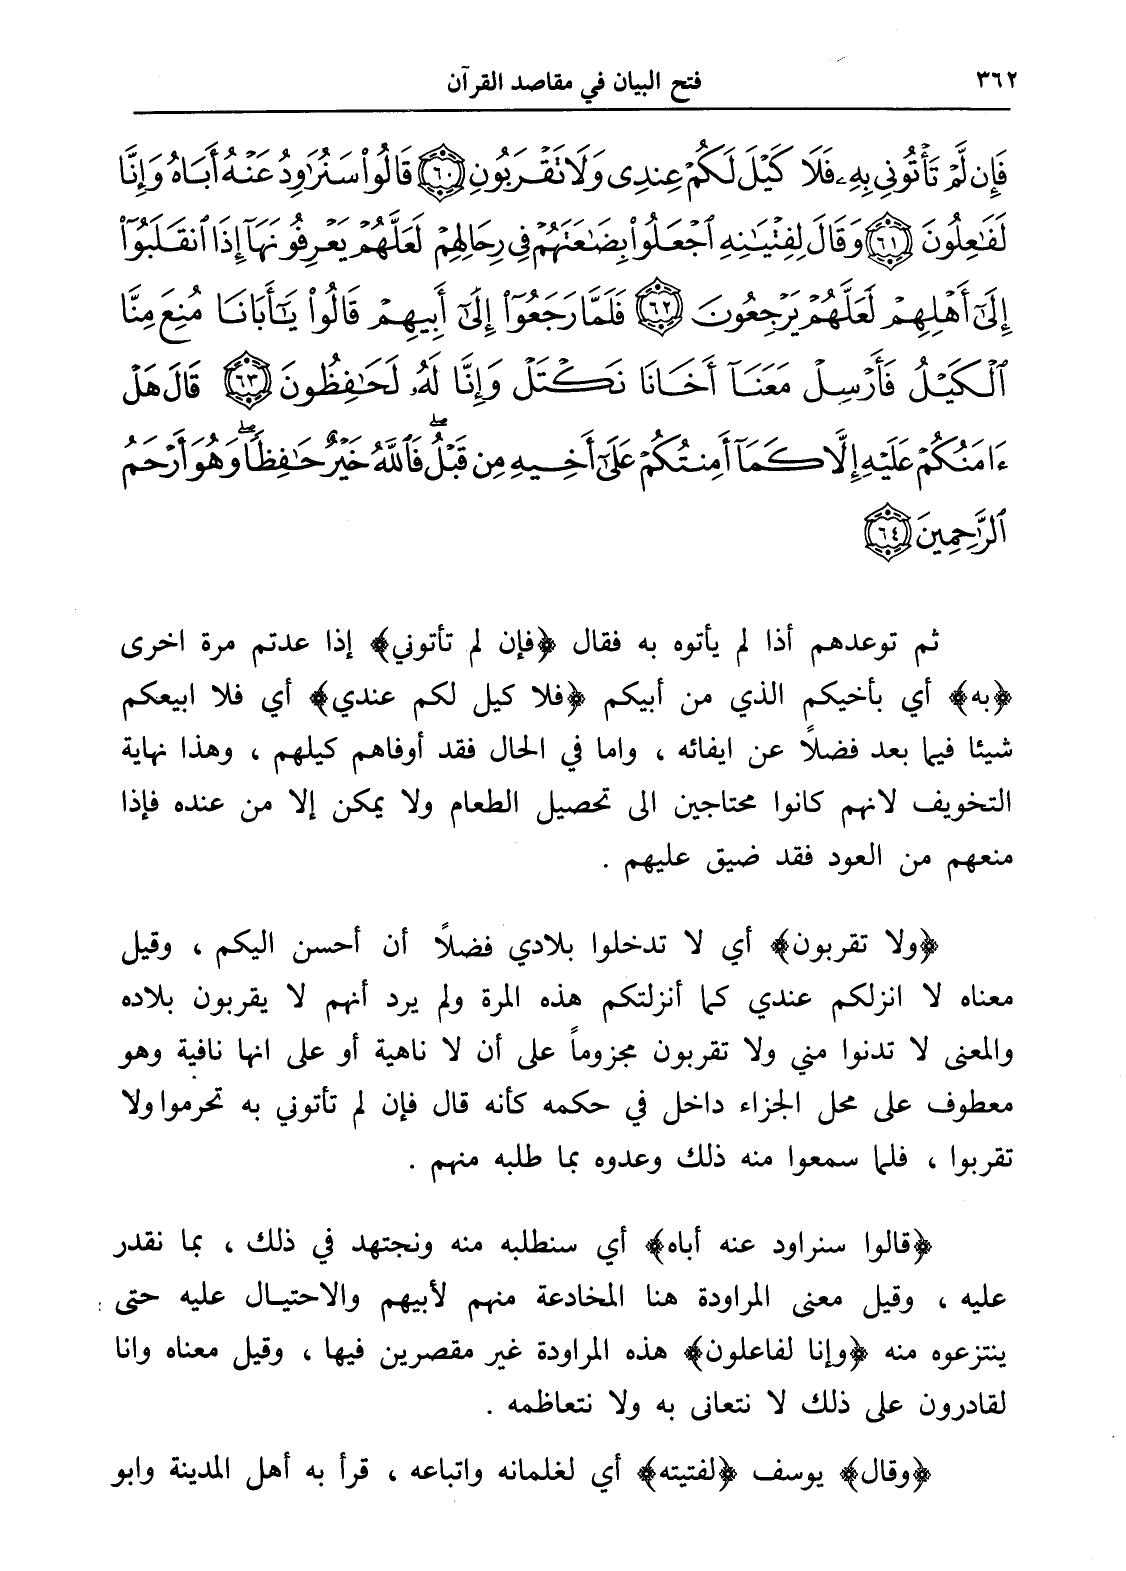 ٣٦٢ فتح البيان في مقاصد القرآن
فَإِن لَّمْ تَأْتُونِي بِهِۦ فَلَا كَيْلَ لَكُمْ عِندِى وَلَا تَقْرَبُونِ ٦٠ قَالُوا۟ سَنُرَٰوِدُ عَنْهُ أَبَاهُ وَإِنَّا
لَفَٰعِلُونَ ٦١ وَقَالَ لِفِتْيَٰنِهِ ٱجْعَلُوا۟ بِضَٰعَتَهُمْ فِى رِحَالِهِمْ لَعَلَّهُمْ يَعْرِفُونَهَآ إِذَا ٱنقَلَبُوٓا۟
إِلَىٰٓ أَهْلِهِمْ لَعَلَّهُمْ يَرْجِعُونَ ٦٢ فَلَمَّا رَجَعُوٓا۟ إِلَىٰٓ أَبِيهِمْ قَالُوا۟ يَٰٓأَبَانَا مُنِعَ مِنَّا
ٱلْكَيْلُ فَأَرْسِلْ مَعَنَآ أَخَانَا نَكْتَلْ وَإِنَّا لَهُۥ لَحَٰفِظُونَ ٦٣ قَالَ هَلْ
ءَامَنُكُمْ عَلَيْهِ إِلَّا كَمَآ أَمِنتُكُمْ عَلَىٰٓ أَخِيهِ مِن قَبْلُ ۖ فَٱللَّهُ خَيْرٌ حَٰفِظًا ۖ وَهُوَ أَرْحَمُ
ٱلرَّٰحِمِينَ ٦٤
ثم توعدهم أذا لم يأتوه به فقال ﴿فإن لم تأتوني﴾ إذا عدتم مرة اخرى
﴿به﴾ أي بأخيكم الذي من أبيكم ﴿فلا كيل لكم عندي﴾ أي فلا ابيعكم
شيئا فيما بعد فضلاً عن ايفائه ، واما في الحال فقد أوفاهم كيلهم ، وهذا نهاية
التخويف لانهم كانوا محتاجين الى تحصيل الطعام ولا يمكن إلا من عنده فإذا
منعهم من العود فقد ضيق عليهم .
﴿ولا تقربون﴾ أي لا تدخلوا بلادي فضلاً أن أحسن اليكم ، وقيل
معناه لا انزلكم عندي كما أنزلتكم هذه المرة ولم يرد أنهم لا يقربون بلاده
والمعنى لا تدنوا مني ولا تقربون مجزوماً على أن لا ناهية أو على انها نافية وهو
معطوف على محل الجزاء داخل في حكمه كأنه قال فإن لم تأتوني به تحرموا ولا
تقربوا ، فلما سمعوا منه ذلك وعدوه بما طلبه منهم .
﴿قالوا سنراود عنه أباه﴾ أي سنطلبه منه ونجتهد في ذلك ، بما نقدر
عليه ، وقيل معنى المراودة هنا المخادعة منهم لأبيهم والاحتيال عليه حتى
ينتزعوه منه ﴿وإنا لفاعلون﴾ هذه المراودة غير مقصرين فيها ، وقيل معناه وانا
لقادرون على ذلك لا نتعانى به ولا نتعاظمه .
﴿وقال﴾ يوسف ﴿لفتيته﴾ أي لغلمانه واتباعه ، قرأ به أهل المدينة وابو